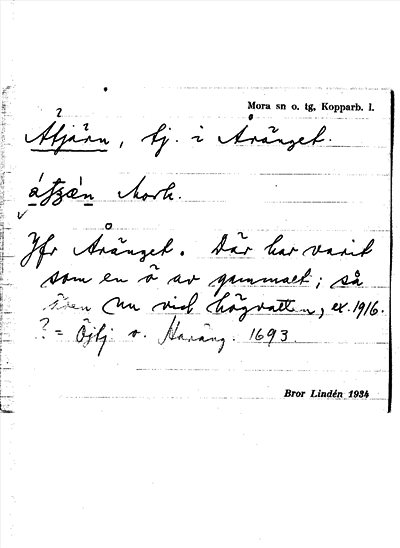 Mora sn o. tg, Kopparb. l.
Åtjärn, tj. i Åränget.
Mork.
Jfr Åränget. Där har varit
som en ö av gammalt; så
även nu vid högvatten, ex. 1916.
? = Öjtj o. Haräng. 1693
Bror Lindén 1934